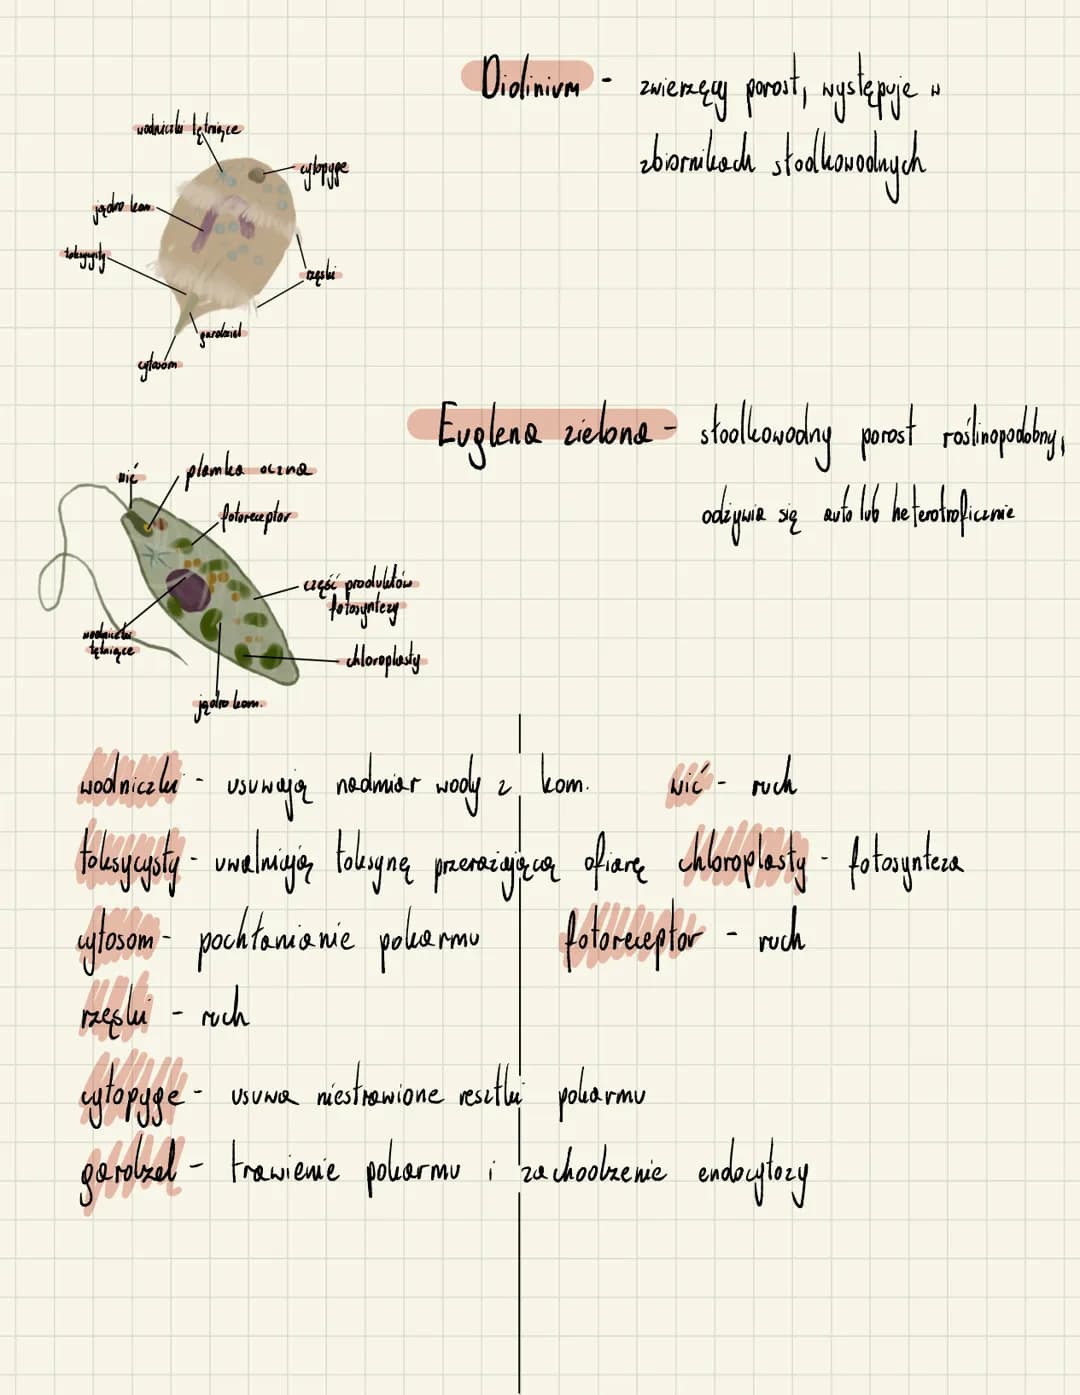 Didinium - zwierzęcy porost, występuje w
zbiornikach słodkowodnych
wodniczki tętniące
cytopyge
jądro kom.
toksycysty
rzęski
gardziel
cytosom
Euglena zielona - słodkowodny porost roślinopodobny,
odżywia się auto lub heterotroficznie
wić
plamka oczna
fotoreceptor
część produktów
fotosyntezy
wodniczki
tętniące
chloroplasty
jądro kom.
wodniczki - usuwają nadmiar wody z kom.
wić - ruch
toksycysty - uwalniają toksynę przerażającą ofiarę
chloroplasty - fotosynteza
cytosom - pochłanianie pokarmu
fotoreceptor - ruch
rzęski - ruch
cytopyge - usuwa niestrawione resztki pokarmu
gardzel - trawienie pokarmu i zachodzenie endocytozy